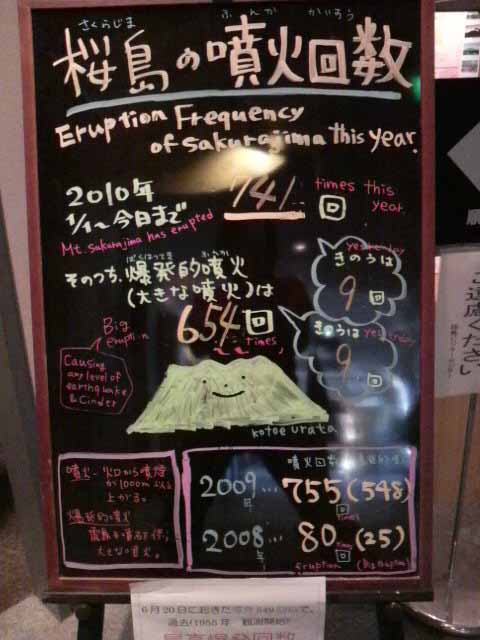 さくらじま ふんか かいすう
桜島の噴火回数
Eruption Frequency
of Sakurajima this year.
2010年
1/1～今日まで
741回
times this
year.
Mt. Sakurajima has erupted
ばくはつてき ふんか
そのうち、爆発的噴火
(大きな噴火)は
654回
times
yesterday
きのうは
9回
きのうは yesterday
9回
Big
eruption
Causing
any level of
earthquake
& Cinder
kotoe urata
噴火…火口から噴煙
が1000m以上
上がる。
爆発的噴火
大きな噴火。
噴火回数
2009年… 755(548)
回 times
2008年… 80(25)
回
eruption (Big eruption)
6月20日に起きた
過去(1955年 観測開始)
最高爆発回数
ご遠慮ください